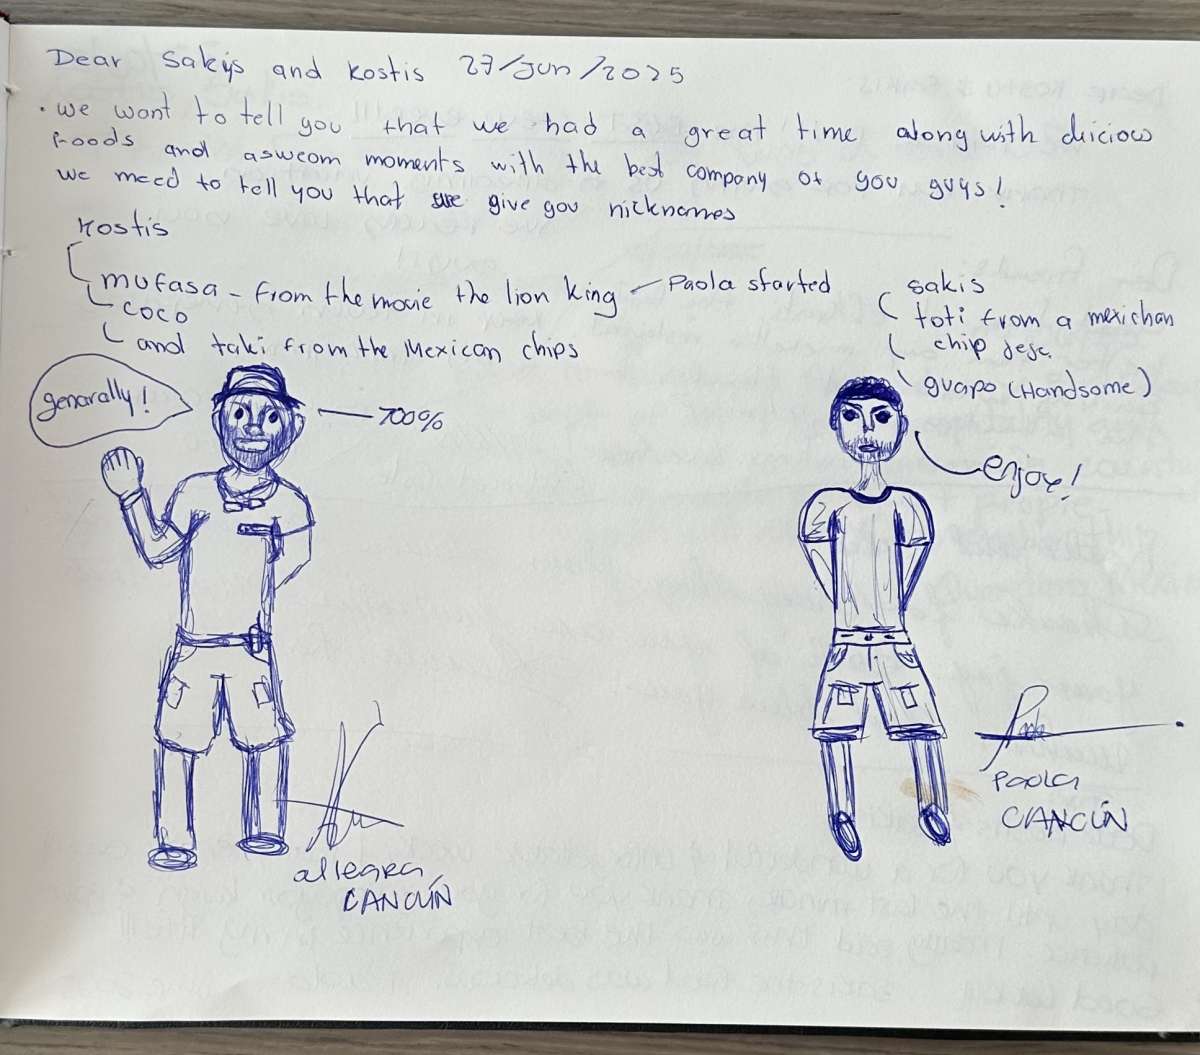 Dear Sakis and Kostis 27/Jun/2025
• we want to tell you that we had a great time along with dliciow
Foods and asweom moments with the best company of you guys!
we need to tell you that we give you nicknames
Kostis
mufasa - from the movie the lion king - Paola started
coco
and taki from the Mexican chips
sakis
toti from a mexichan
chip
guapo (Handsome)
genarally!
700%
enjoy!
Paola
CANCÚN
allegra,
CANCÚN